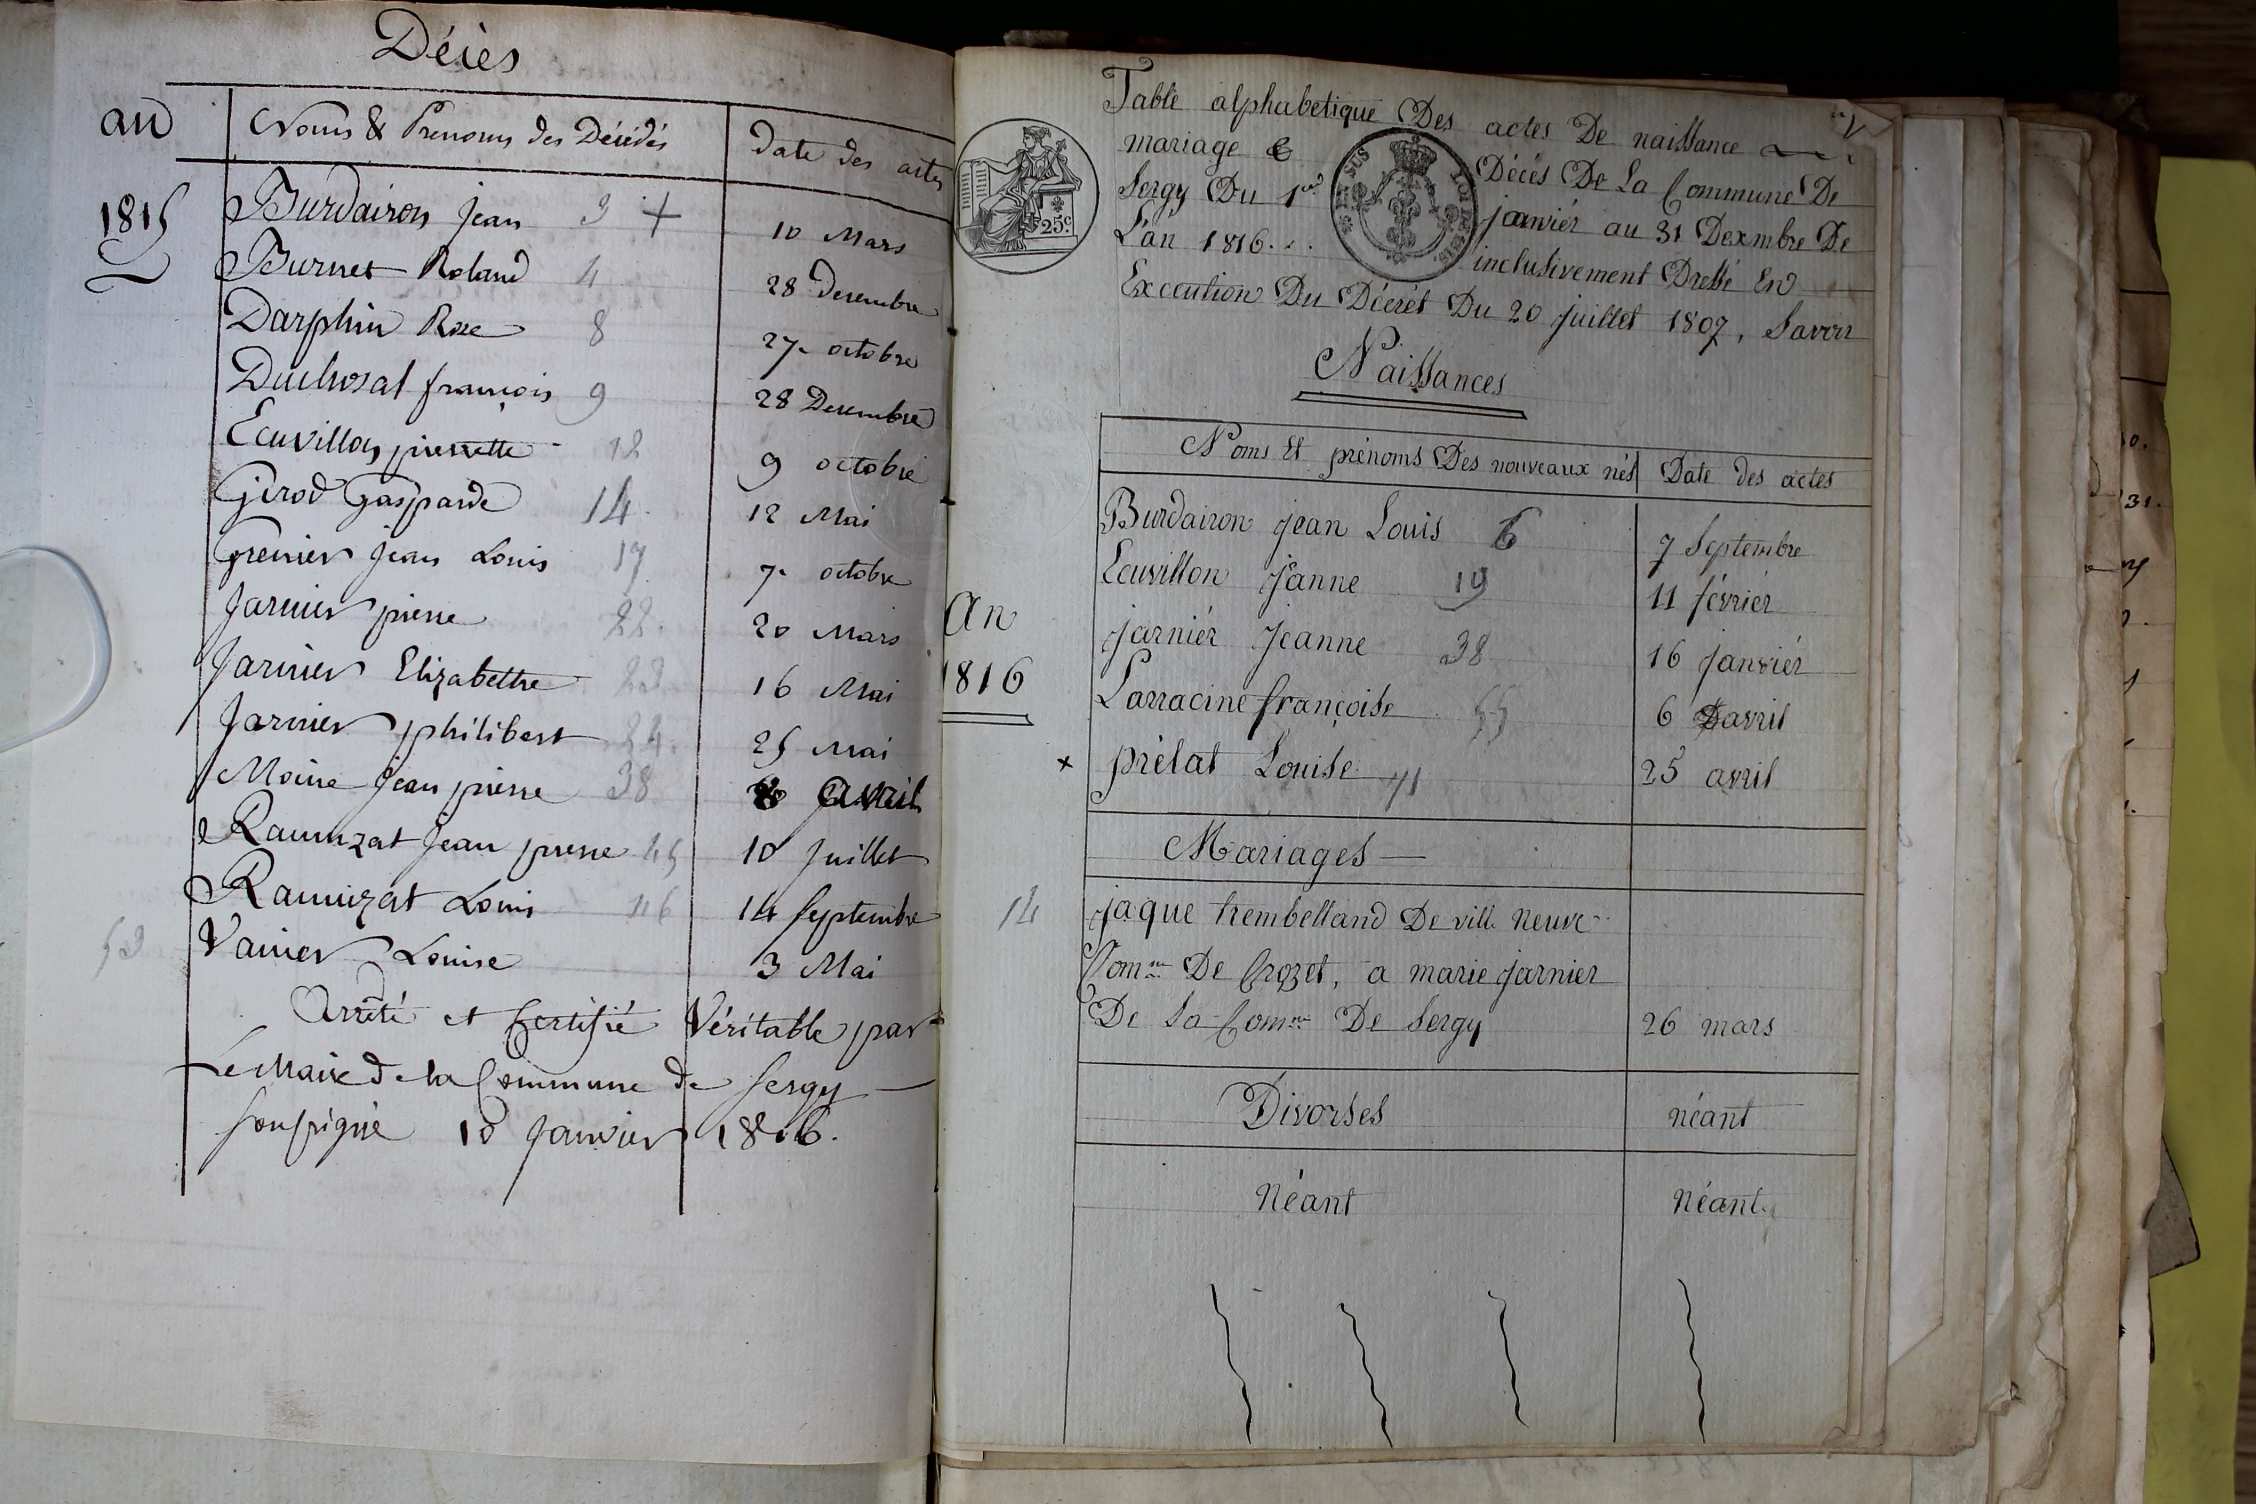 Décès
an
Noms & Prenoms des Décédés
Date des actes
1815
Burdairon Jean 3 +
10 Mars
Burnet Roland 4
28 Decembre
Darphin Rose 8
27 octobre
Duchosal françois 9
28 Decembre
Ecuvillon pierrette 12
9 octobre
Girod Gasparde 14
12 Mai
Grenier Jean Louis 17
7 octobre
Jarnier pierre 22
20 Mars
Jarnier Elizabethe 23
16 Mai
Jarnier philibert 24
25 Mai
Moine Jean pierre 38
8 avril
Ramuzat Jean pierre 45
10 Juillet
Ramuzat Louis 46
14 Septembre
53 Vanier Louise
3 Mai
Arrêté et Certifié Véritable par
Le Maire de la Commune de Sergy
Soussigné 10 Janvier 1816.
Table alphabetique Des actes De naissance
mariage & Décés De La Commune De
Sergy Du 1er janviér au 31 Dexmbre De
L'an 1816... inclusivement Dressé En
Execution Du Décrét Du 20 juillet 1807, Savoir
25c.
Naissances
Noms Et prénoms Des nouveaux nés
Date des actes
An
1816
Burdairon jean Louis 6
7 Septembre
Ecuvillon Jeanne 19
11 février
jarniér Jeanne 38
16 janviér
Larracine françoise 55
6 avril
x prélat Louise 71
25 avril
Mariages
14 jaque trembelland De ville neuve
Comne De Crozet, a marie jarnier
De La Comne De Sergy
26 mars
Divorses
néant
Néant
Néant